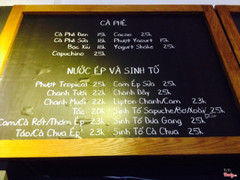 CÀ PHÊ
Cà Phê Đen 15k Cacao 25k
Cà Phê Sữa 18k Phượt Yaourt 15k
Bạc Xỉu 18k Yogurt Shake 25k
Capuchino 25k
NƯỚC ÉP VÀ SINH TỐ
Phượt Tropical 25k Cam Ép 25k
Chanh Tươi 22k Chanh Dây 25k
Chanh Muối 22k Lipton Chanh/Cam 23k
Tắc 22k Sinh Tố Sapuche/Bơ/Nho 25k
Cam/Cà Rốt/Thơm 25k Sinh Tố Dưa Gang 25k
Táo/Cà Chua Ép 25k Sinh Tố Cà Chua 25k